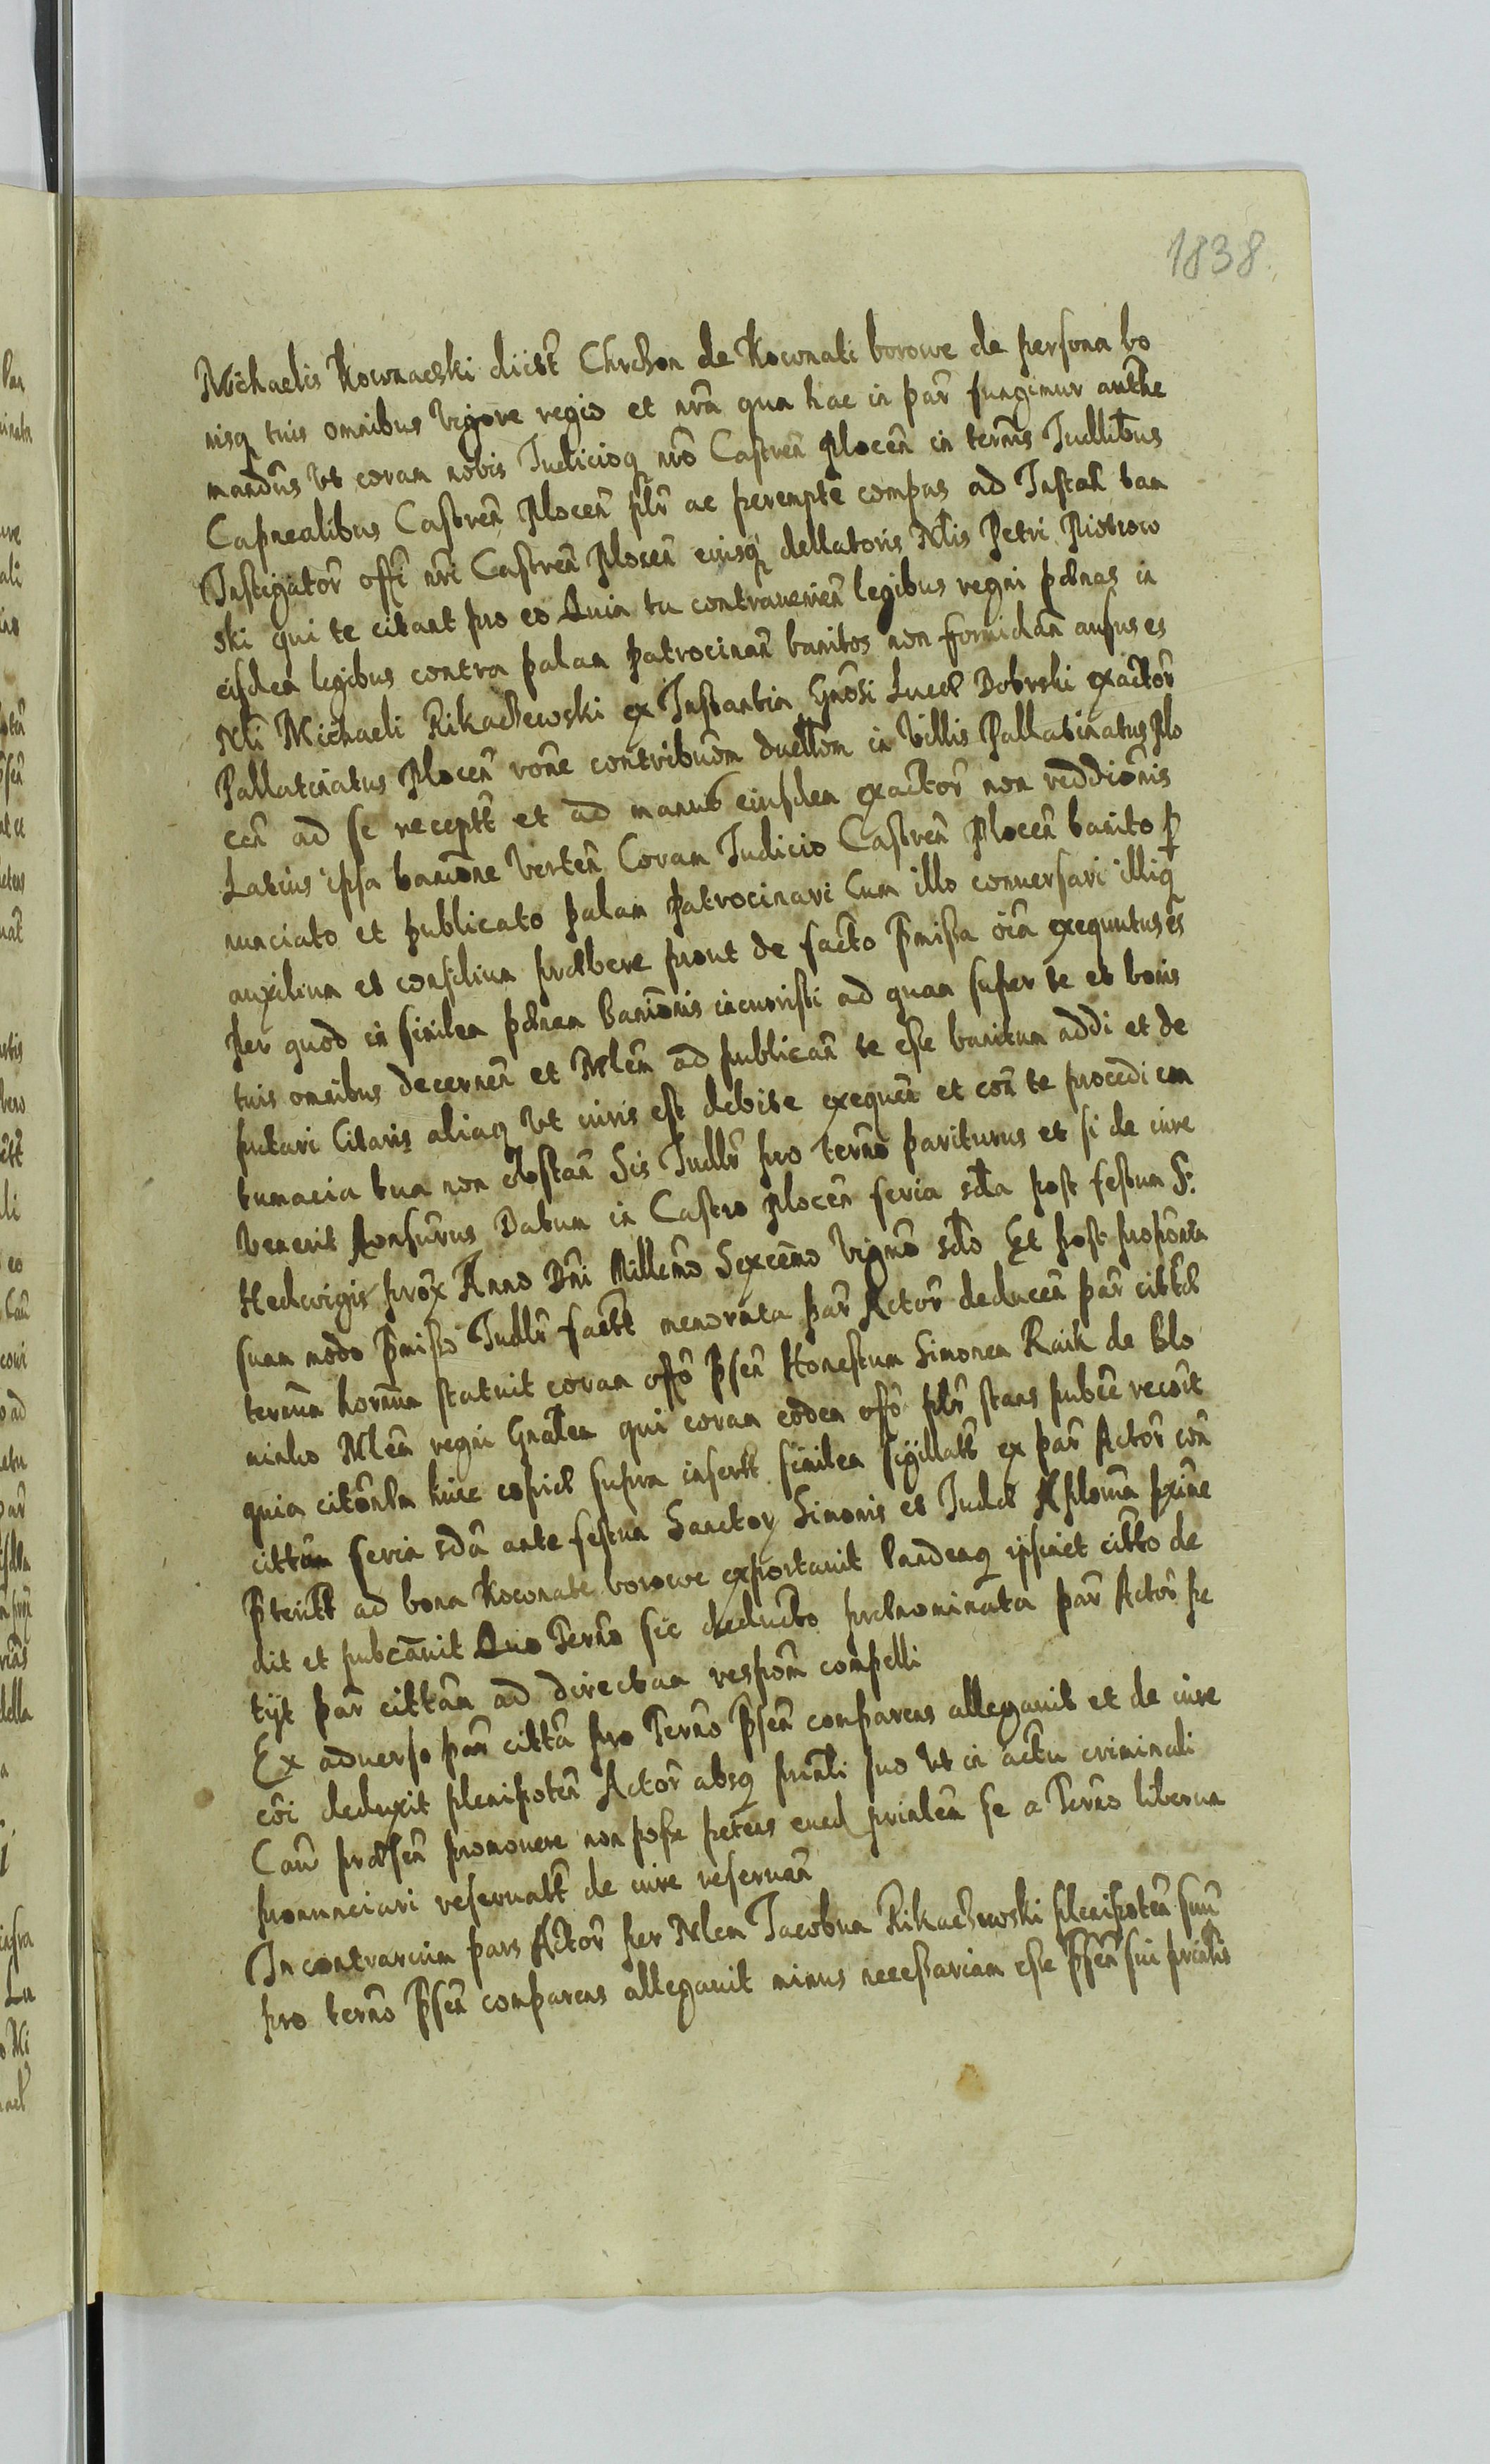 1838.
Michaelis Kownaczki dictt Chrchon de Kownati borowe de persona bo
nisq tuis omnibus vigore regia et nrã qua hac in par̃ fungimur authe
mandũs ut coram nobis Judicioq nr̃o Castreñ Ploceñ in termĩs Judllibus
Capnealibus Castreñ Ploceñ plr̃ ac perempte compas ad Instañ tam
Instigator̃ offi nr̃i Castreñ Ploceñ eiusq dellatoris Nlis Petri Piotrow
ski qui te citant pro eo Quia tu contraveneñ legibus regni pænas in
eisdem legibus contra palam patrocinañ banitos non formidañ ausus es
Nli Michaeli Rikaczewski ex Instantia Gnõsi Lucæ Dobrski exactor̃
Pallatinatus Ploceñ rõne contribuõm duellom in Villis Pallatinatus Plo
ceñ ad se receptt et ad manus eiusdem exactor̃ non reddiõnis
Latius ipsa baniõne verteñ Coram Judicio Castreñ Ploceñ banito p
nunciato et publicato palam patrocinari Cum illo conversari illiq
auxilium et consilium præbere prout de facto Pmissa oĩa exequutus es
Per quod in similem pænam baniõnis incurristi ad quam super te et bonis
tuis omnibus decerneñ et Mlem̃ ad publicañ te esse banitum addi et de
putari Citaris aliaq ut iuris est debite exequeñ et coñ te procedi con
tumacia tua non obstañ Sis Judlr̃ pro termo pariturus et si de iure
Venerit Ronsurus Datum in Castro Ploceñ feria sdã post festum S:
Hedwigis prox Anno Dñi Millemo Sexceñmo Vigmo sdo Et post proponta
suam modo Pmisso Judlr̃ factt memorata par̃ Actor̃ deducen par̃ cittæ
termũm horum statuit coram offo Pseñ Honestum Simonem Raik de blo
nisko Mlem̃ regni Gnãlem qui coram eodem offo plr̃ stans pubce recõit
quia citõnlm huic copiæ supra insertt similem sigillatt ex par̃ Actor̃ coñ
cittam feria sdã ante festum Sanctor Simonis et Judæ Aplorum pxime
Pteritt ad bona Kownati borowe exportavit Eandemq ipsimet citto de
dit et pubcavit Quo Termo sic deducto prænominata par̃ Actor̃ pe
tyt par̃ cittam ad directam respom̃ compelli
Ex adverso par̃ citta pro Termo Pseñ comparens allegavit et de iure
cõi deduxit plenipoteñ Actor̃ absq prinli suo ut in actu criminali
Cam præseñ promovere non posse petens eued prinlem̃ se a Termo liberum
pronunciari reservatt de iure reservañ
In contrarium pars Actor̃ per Mlem Jacobum Rikaczewski plenipoteñ suũ
pro termo Pseñ comparens allegavit minus necessariam esse Pseñ sui prinlis